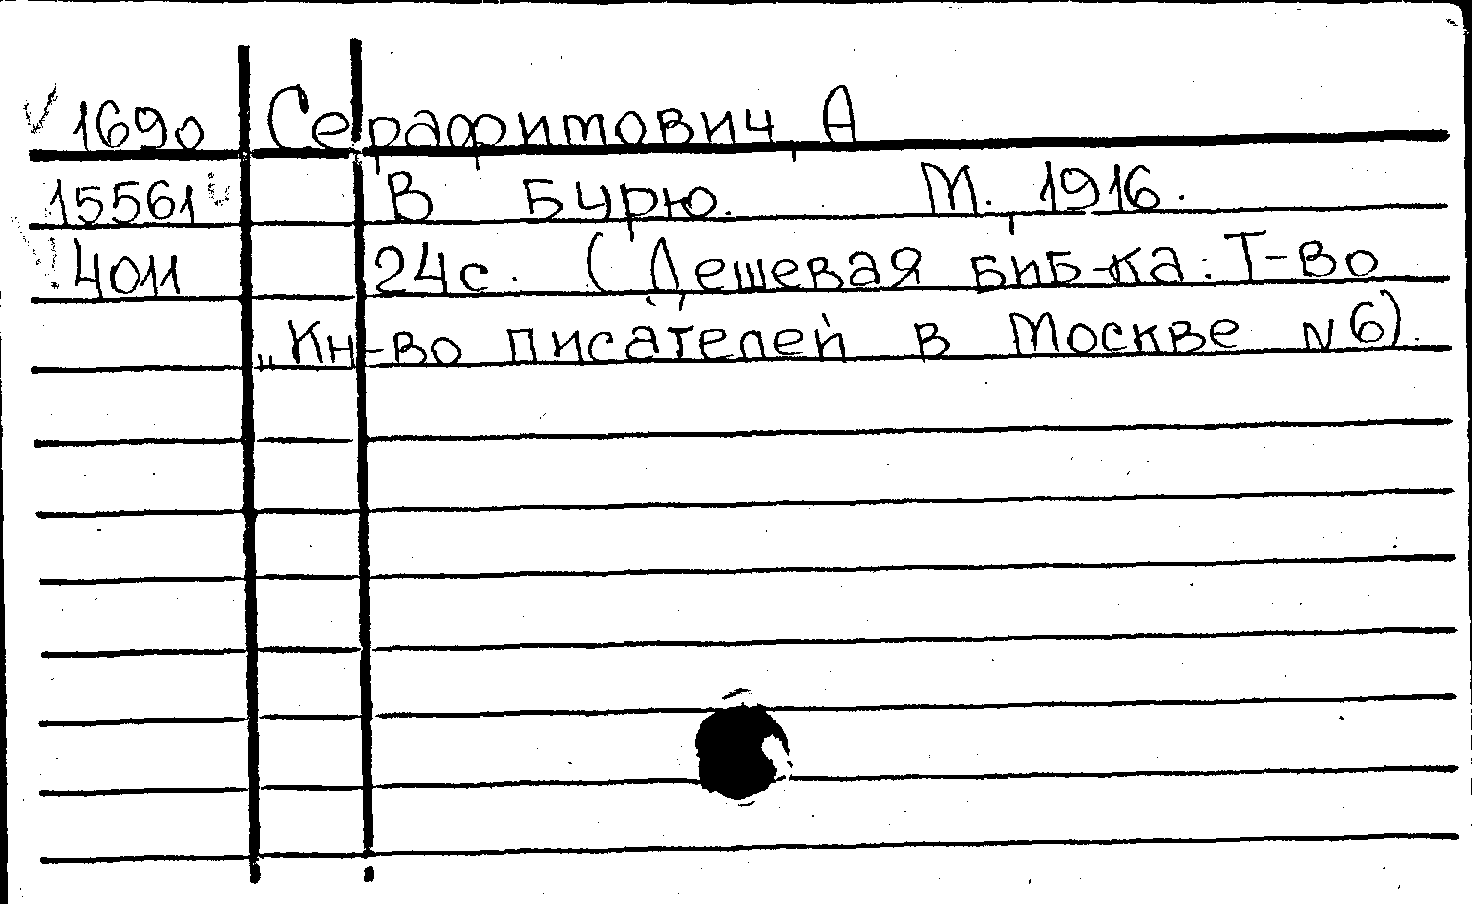 1690 Серафимович, А
15561 В Бурю. М., 1916.
4011 24с. (Дешевая биб-ка: Т-во
„Кн-во писателей в Москве N6).